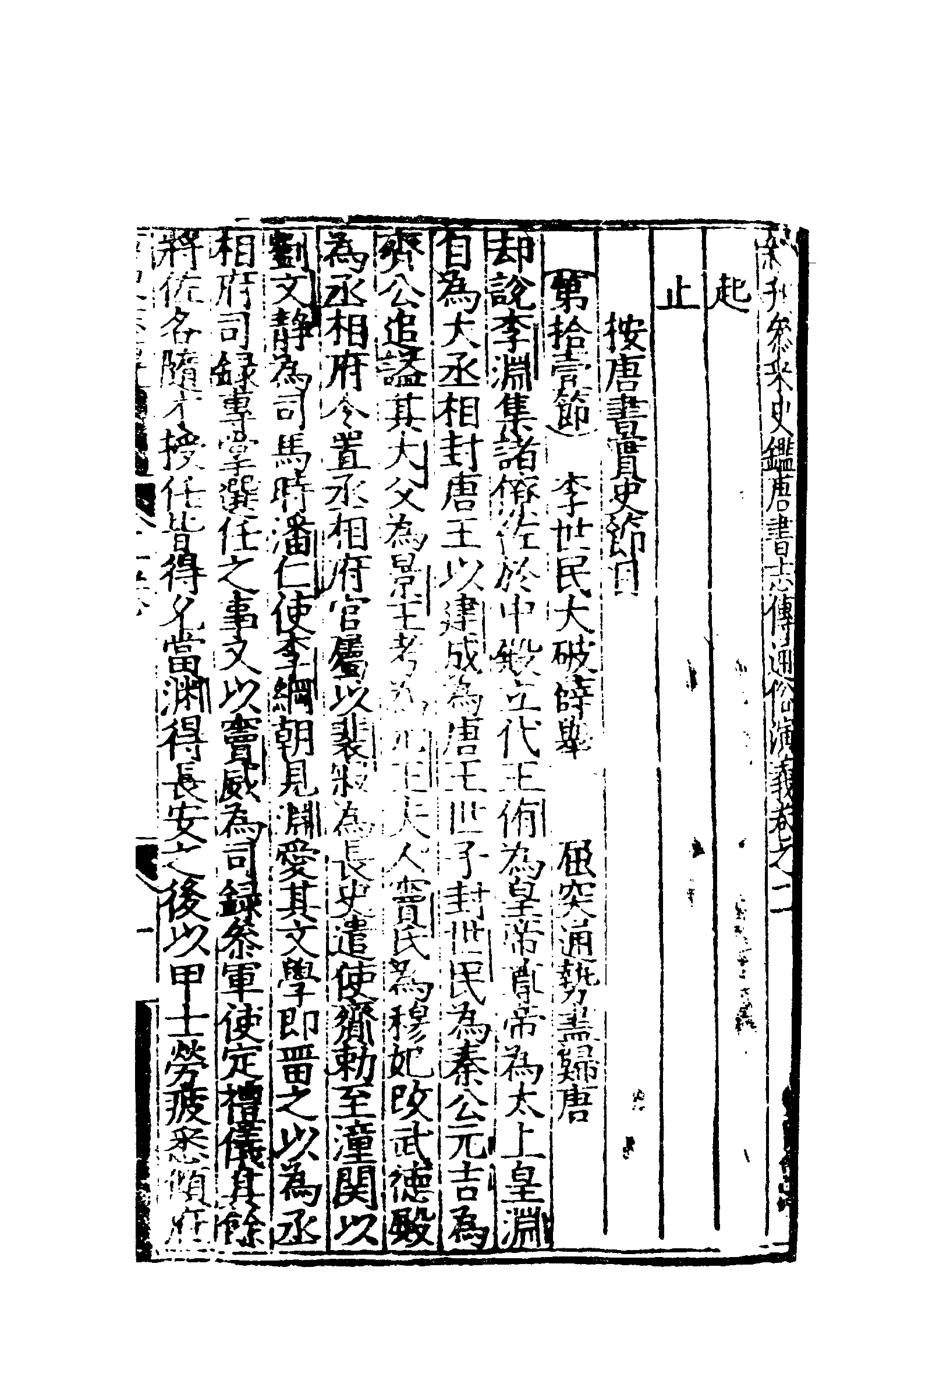 新刊參采史鑑唐書志傳通俗演義卷之二
起
止
按唐書實史節目
第拾壹節 李世民大破薛舉 屈突通勢盡歸唐
却說李淵集諸僚佐於中殿立代王侑為皇帝尊帝為太上皇淵
自為大丞相封唐王以建成為唐王世子封世民為秦公元吉為
齊公追謚其大父為景王考為元王夫人竇氏為穆妃改武德殿
為丞相府令置丞相府官屬以裴寂為長史遣使齎勅至潼関以
劉文静為司馬時潘仁使李綱朝見淵愛其文學即畱之以為丞
相府司録專掌選任之事又以竇威為司録叅軍使定禮儀其餘
將佐各隨才授任皆得允當淵得長安之後以甲士勞疲悉傾府